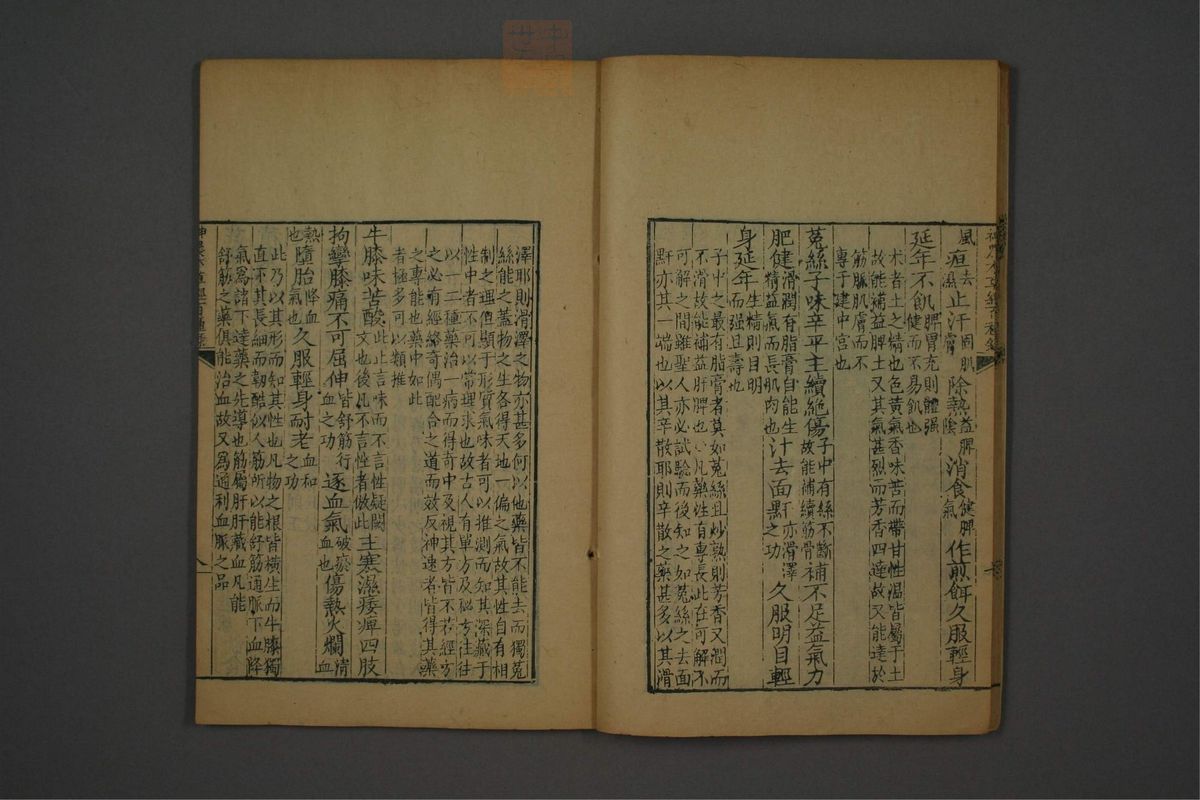 風疸去濕止汗固肌膚除熱益脾陰消食健脾氣作煎餌久服輕身
延年不飢脾胃充則體强健而不易飢也
朮者土之精也色黃氣香味苦而帶甘性溫皆屬于土
故能補益脾土又其氣甚烈而芳香四達故又能達於
筋脈肌膚而不
專于建中宮也
菟絲子味辛平主續絕傷子中有絲不斷故能補續筋骨補不足益氣力
肥健滑潤有脂膏自能生精益氣而長肌肉也汁去面皯亦滑澤之功久服明目輕
身延年生精則目明而强且壽也
子中之最有脂膏者莫如菟絲且炒熟則芳香又潤而
不滑故能補益肝脾也凡藥性有專長此在可解不
可解之間雖聖人亦必試驗而後知之如菟絲之去面
皯亦其一端也以其辛散耶則辛散之藥甚多以其滑
澤耶則滑澤之物亦甚多何以他藥皆不能去而獨菟
絲能之蓋物之生各得天地一偏之氣故其性自有相
制之理但顯于形質氣味者可以推測而知其深藏于
性中者不可以常理求也故古人有單方及秘方往往
以一二種藥治一病而得奇中及視其方皆不若經方
之必有經緯奇偶配合之道而效反神速者皆得其藥
之專能也藥中如此
者極多可以類推
牛膝味苦酸此止言味而不言性疑闕文也後凡不言性者倣此主寒濕痿痺四肢
拘攣膝痛不可屈伸皆舒筋行血之功逐血氣破瘀血也傷熱火爛清血
熱也墮胎降血氣也久服輕身耐老血和而之功
此乃以其形而知其性也凡物之根皆橫生而牛膝獨
直下其長細而韌酷似人筋所以能舒筋通脈下血降
氣爲諸下達藥之先導也筋屬肝肝藏血凡能
舒筋之藥俱能治血故又爲通利血脈之品